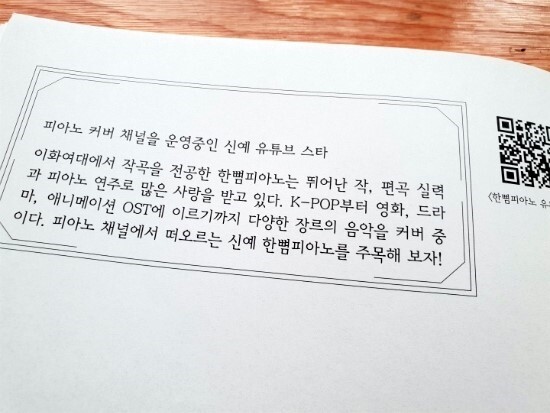 피아노 커버 채널을 운영중인 신예 유튜브 스타
이화여대에서 작곡을 전공한 한뼘피아노는 뛰어난 작, 편곡 실력
과 피아노 연주로 많은 사랑을 받고 있다. K-POP부터 영화, 드라
마, 애니메이션 OST에 이르기까지 다양한 장르의 음악을 커버 중
이다. 피아노 채널에서 떠오르는 신예 한뼘피아노를 주목해 보자!
<한뼘피아노